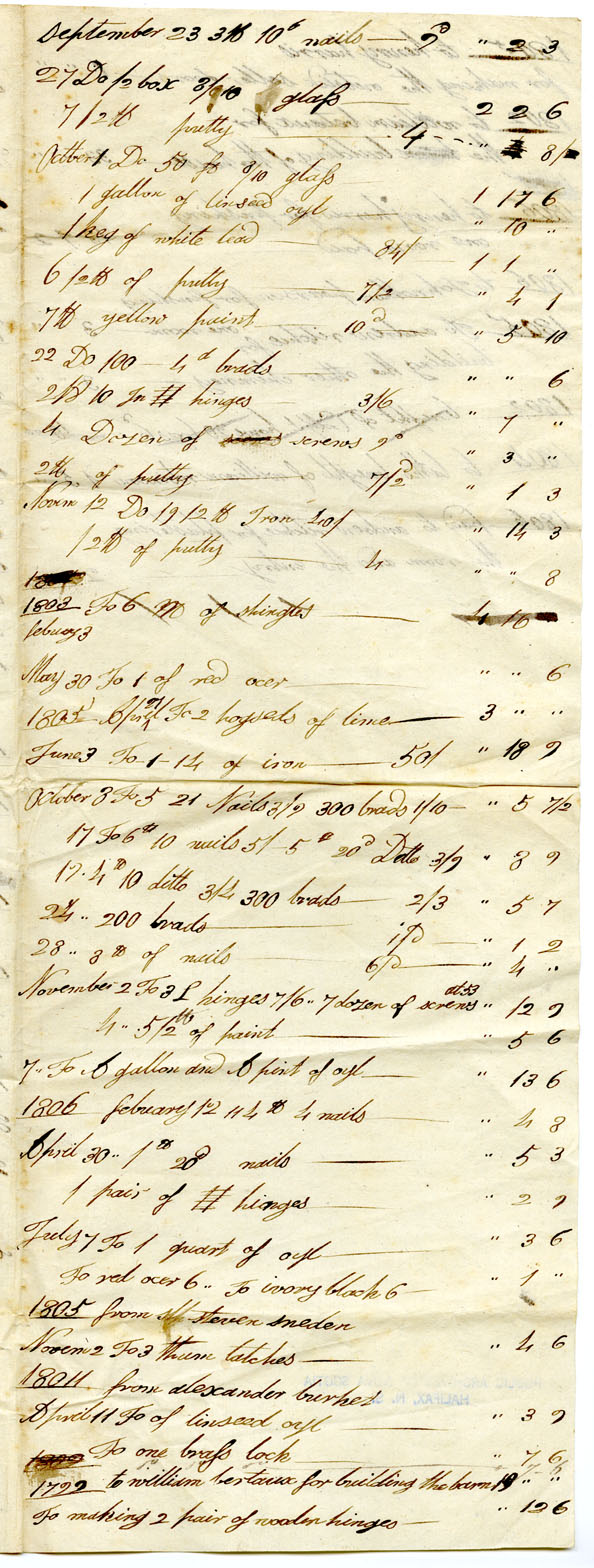 September 23 3 lb 10d nails — 9d " 2 3
27 Do 1/2 box 8/10 glass 2 2 6
7 1/2 lb putty — 4 — " 8/
Octber 1 Do 50 ft 8/10 glass 1 17 6
1 gallon of linseed oyl " 10 "
1 keg of white lead — 84/ 1 1 "
6 1/2 lb of putty 7 1/2 — " 4 1
7 lb yellow paint — 10d " 5 10
22 Do 100 — 4d brads " " 6
2 10 In H hinges 3/6 " 7 "
4 Dozen of screws 9d " 3 "
2 lb of putty 7 1/2d " 1 3
Novem 12 Do 19 1/2 lb Iron 40/ " 14 3
1/2 lb of putty — 4 " " 8
1803 To 6 M of shingles — 4 10
febuary 3
May 30 To 1 of red ocer — " " 6
1805 April 27 To 2 hogseds of lime — 3 " "
June 3 To 1-14 of iron — 50/ " 18 9
October 8 To 5 21 Nails 3/9 300 brads 1/10 — " 5 7/2
17 To 6 lb 10 nails 5/- 5 lb 20d Ditto 3/9 " 8 9
17.. 4 lb 10 ditto 3/4 300 brads 2/3 " 5 7
24 .. 200 brads — 17d " 1 2
28 .. 8 lb of nails 6d — " 4 "
November 2 To 3 L hinges 7/6 .. 7 dozen of screws at 53 " 12 9
4 .. 5 1/2 lb of paint — " 5 6
7 .. To A gallon and A pint of oyl — " 13 6
1806 february 12 " 4 lb 4 nails " 4 8
April 30 .. 1 lb 20d nails — " 5 3
1 pair of H hinges — " 2 9
July 7 To 1 quart of oyl — " 3 6
To red ocer 6 .. To ivory black 6 — " 1 "
1805 from steven sneden
Novem 2 To 3 thum latches — " 4 6
1804 from alexander burket
April 11 To of linseed oyl — " 3 9
To one brass lock — " 7 6
1799 to william bertaux for building the barn 19 " "
To making 2 pair of wooden hinges — " 12 6
HALIFAX, N. S.